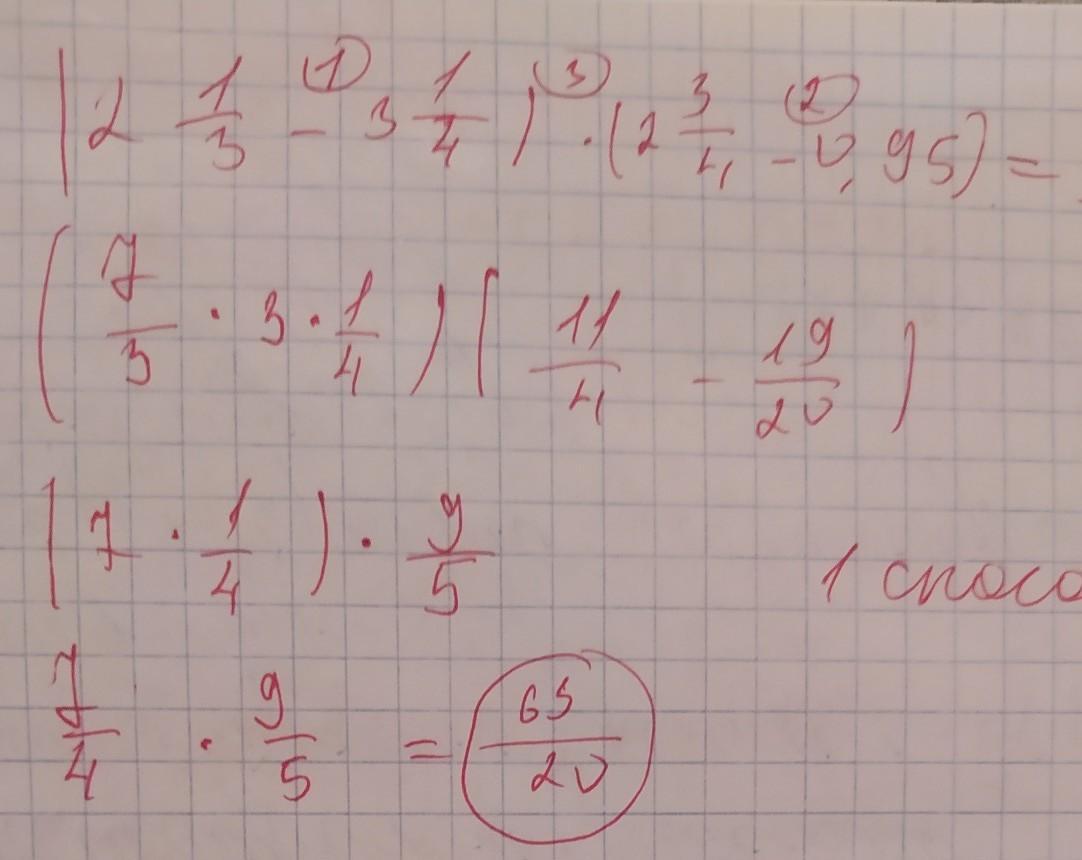 (2 1/3 - 3 1/4) · (2 3/4 - 0,95) =
① ③ ②
(7/3 · 3 · 1/4) (11/4 - 19/20)
(7 · 1/4) · 9/5
1 спосо
7/4 · 9/5 = 65/20